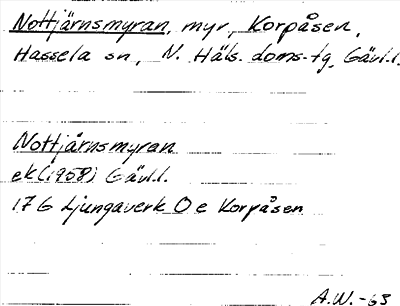 Nottjärnsmyran, myr, Korpåsen,
Hassela sn, N. Häls. doms-tg, Gävl.l.
Nottjärnsmyran
ek(1958) Gävl.l.
17G Ljungaverk O e Korpåsen
A.W.-63